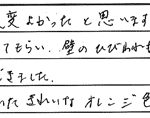 度よかったと思います
てもらい、壁のひびわれも
きました。
きれいなオレンジ色